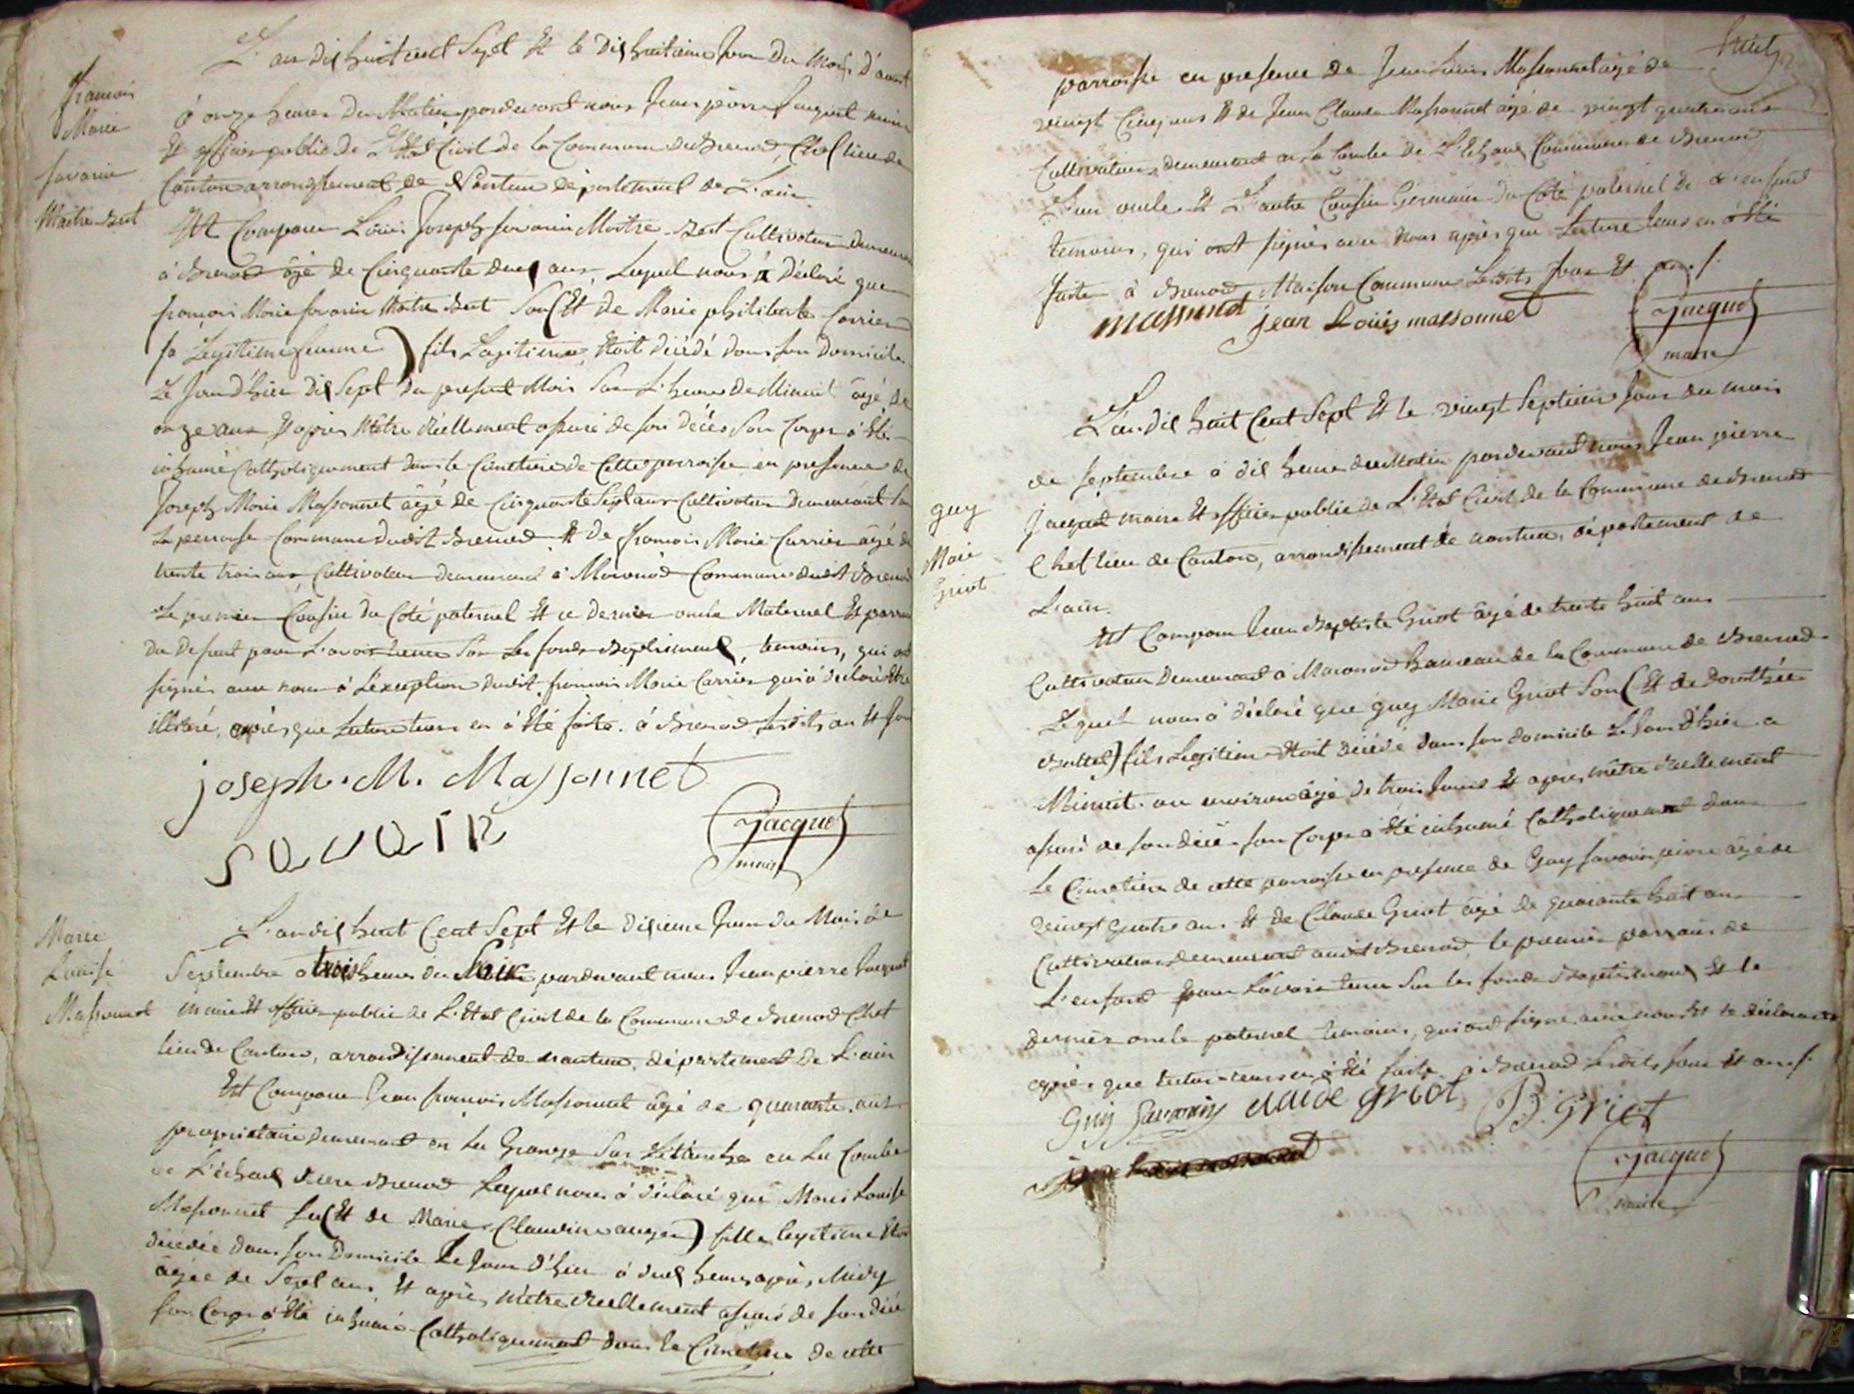 François
Marie
Savarin
Maitre Zert
L'an dix huit cent Sept Et le dix huitieme Jour du Mois d'aout
à onze heures du Matin pardevant nous Jean pierre Jacquet maire
Et officier public de L'Etat Civil de la Commune de Brenod, Chef lieu de
Canton arrondissement de Nantua département de L'ain.
Est Comparu Louis Joseph Savarin Maitre Cultivateur demeurant
à Brenod âgé de Cinquante deux ans, Lequel nous à Déclaré que
françois Marie Savarin Maitre Son (Et de Marie philiberte Carrier
Sa Legitime femme) fils Legitime, Etoit décédé dans son Domicile
Le Jour d'hier dix Sept du present Mois Sur L'heure de Minuit âgé de
onze ans Et après M'etre réellement assuré de son décès Son Corps à été
inhumé Catholiquement dans le Cimetière de Cette parroisse en presence de
Joseph Marie Massonnet âgé de Cinquante Sept ans Cultivateur demeurant
Commune dudit Brenod Et de françois Marie Carrier âgé de
trente trois ans Cultivateur demeurant à Macconod Commune dudit Brenod
Le premier Cousin du Coté paternel Et ce dernier oncle Maternel Et parrain
du defunt pour L'avoir tenu Sur Les fonds Baptismaux, temoins, qui ont
signés avec nous à L'exception dudit françois Marie Carrier qui à déclaré être
illitéré, après que Lecture Leurs en à été faite. à Brenod Lesdits an Et Jour
joseph. M. Massonnet
savarin
Jacquet
maire
Marie
Louise
Massonnet
L'an dix huit Cent Sept Et le dixieme Jour du Mois de
Septembre à trois heures du Soir pardevant nous Jean pierre Jacquet
maire Et officier public de L'Etat Civil de la Commune de Brenod Chef
lieu de Canton, arrondissement de nantua, département de L'ain
Est Comparu Jean françois Massonnet âgé de quarante ans
propriétaire demeurant en La Grange Sur en La Combe
de L'échaux Brenod Lequel nous à déclaré que Marie Louise
Massonnet Sa (Et de Marie Claudine) fille legitime Etoit
décédée dans son Domicile Le Jour d'hier à deux heures après Midy
âgée de Sept ans Et après M'etre réellement assuré de son décès
Son Corps à été inhumé Catholiquement dans le Cimetière de cette
huit
parroisse en presence de Jean Louis Massonnet âgé de
vingt Cinq ans Et de Jean Claude Massonnet âgé de vingt quatre ans
Cultivateurs demeurant en La Combe de L'échaux Commune de Brenod
L'un oncle Et L'autre Cousin Germain du Coté paternel de L'enfant
temoins, qui ont signés avec Nous après que Lecture Leurs en à été
faite à Brenod Maison Commune Lesdits Jour Et an.
massonnet
jean Louis massonnet
Jacquet
maire
guy
Marie
Griot
L'an dix huit Cent Sept Et le vingt Septieme Jour du mois
de Septembre à dix heures du Matin pardevant nous Jean pierre
Jacquet maire Et officier public de L'Etat Civil de la Commune de Brenod
Chef lieu de Canton, arrondissement de nantua, département de
L'ain.
Est Comparu Jean Baptiste Griot âgé de trente huit ans
Cultivateur demeurant à Macconod hameau de la Commune de Brenod
Lequel nous à déclaré que guy Marie Griot Son (Et de Dorothée
) fils Legitime Etoit décédé dans son domicile Le Jour d'hier à
Minuit ou environ âgé de trois Jours Et après m'être réellement
assuré de son décès Son Corps à été inhumé Catholiquement dans
Le Cimetière de cette parroisse en presence de Guy Savarin âgé de
vingt quatre ans Et de Claude Griot âgé de quarante huit ans
Cultivateurs demeurant audit Brenod, le premier parrain de
L'enfant pour L'avoir tenu Sur les fonds Baptismaux Et le
dernier oncle paternel temoins, qui ont signé avec nous Et le déclarant
après que lecture leurs en à été faite à Brenod Lesdits Jour Et an.
Guy Savarin claude griot B. Griot
Jacquet
maire